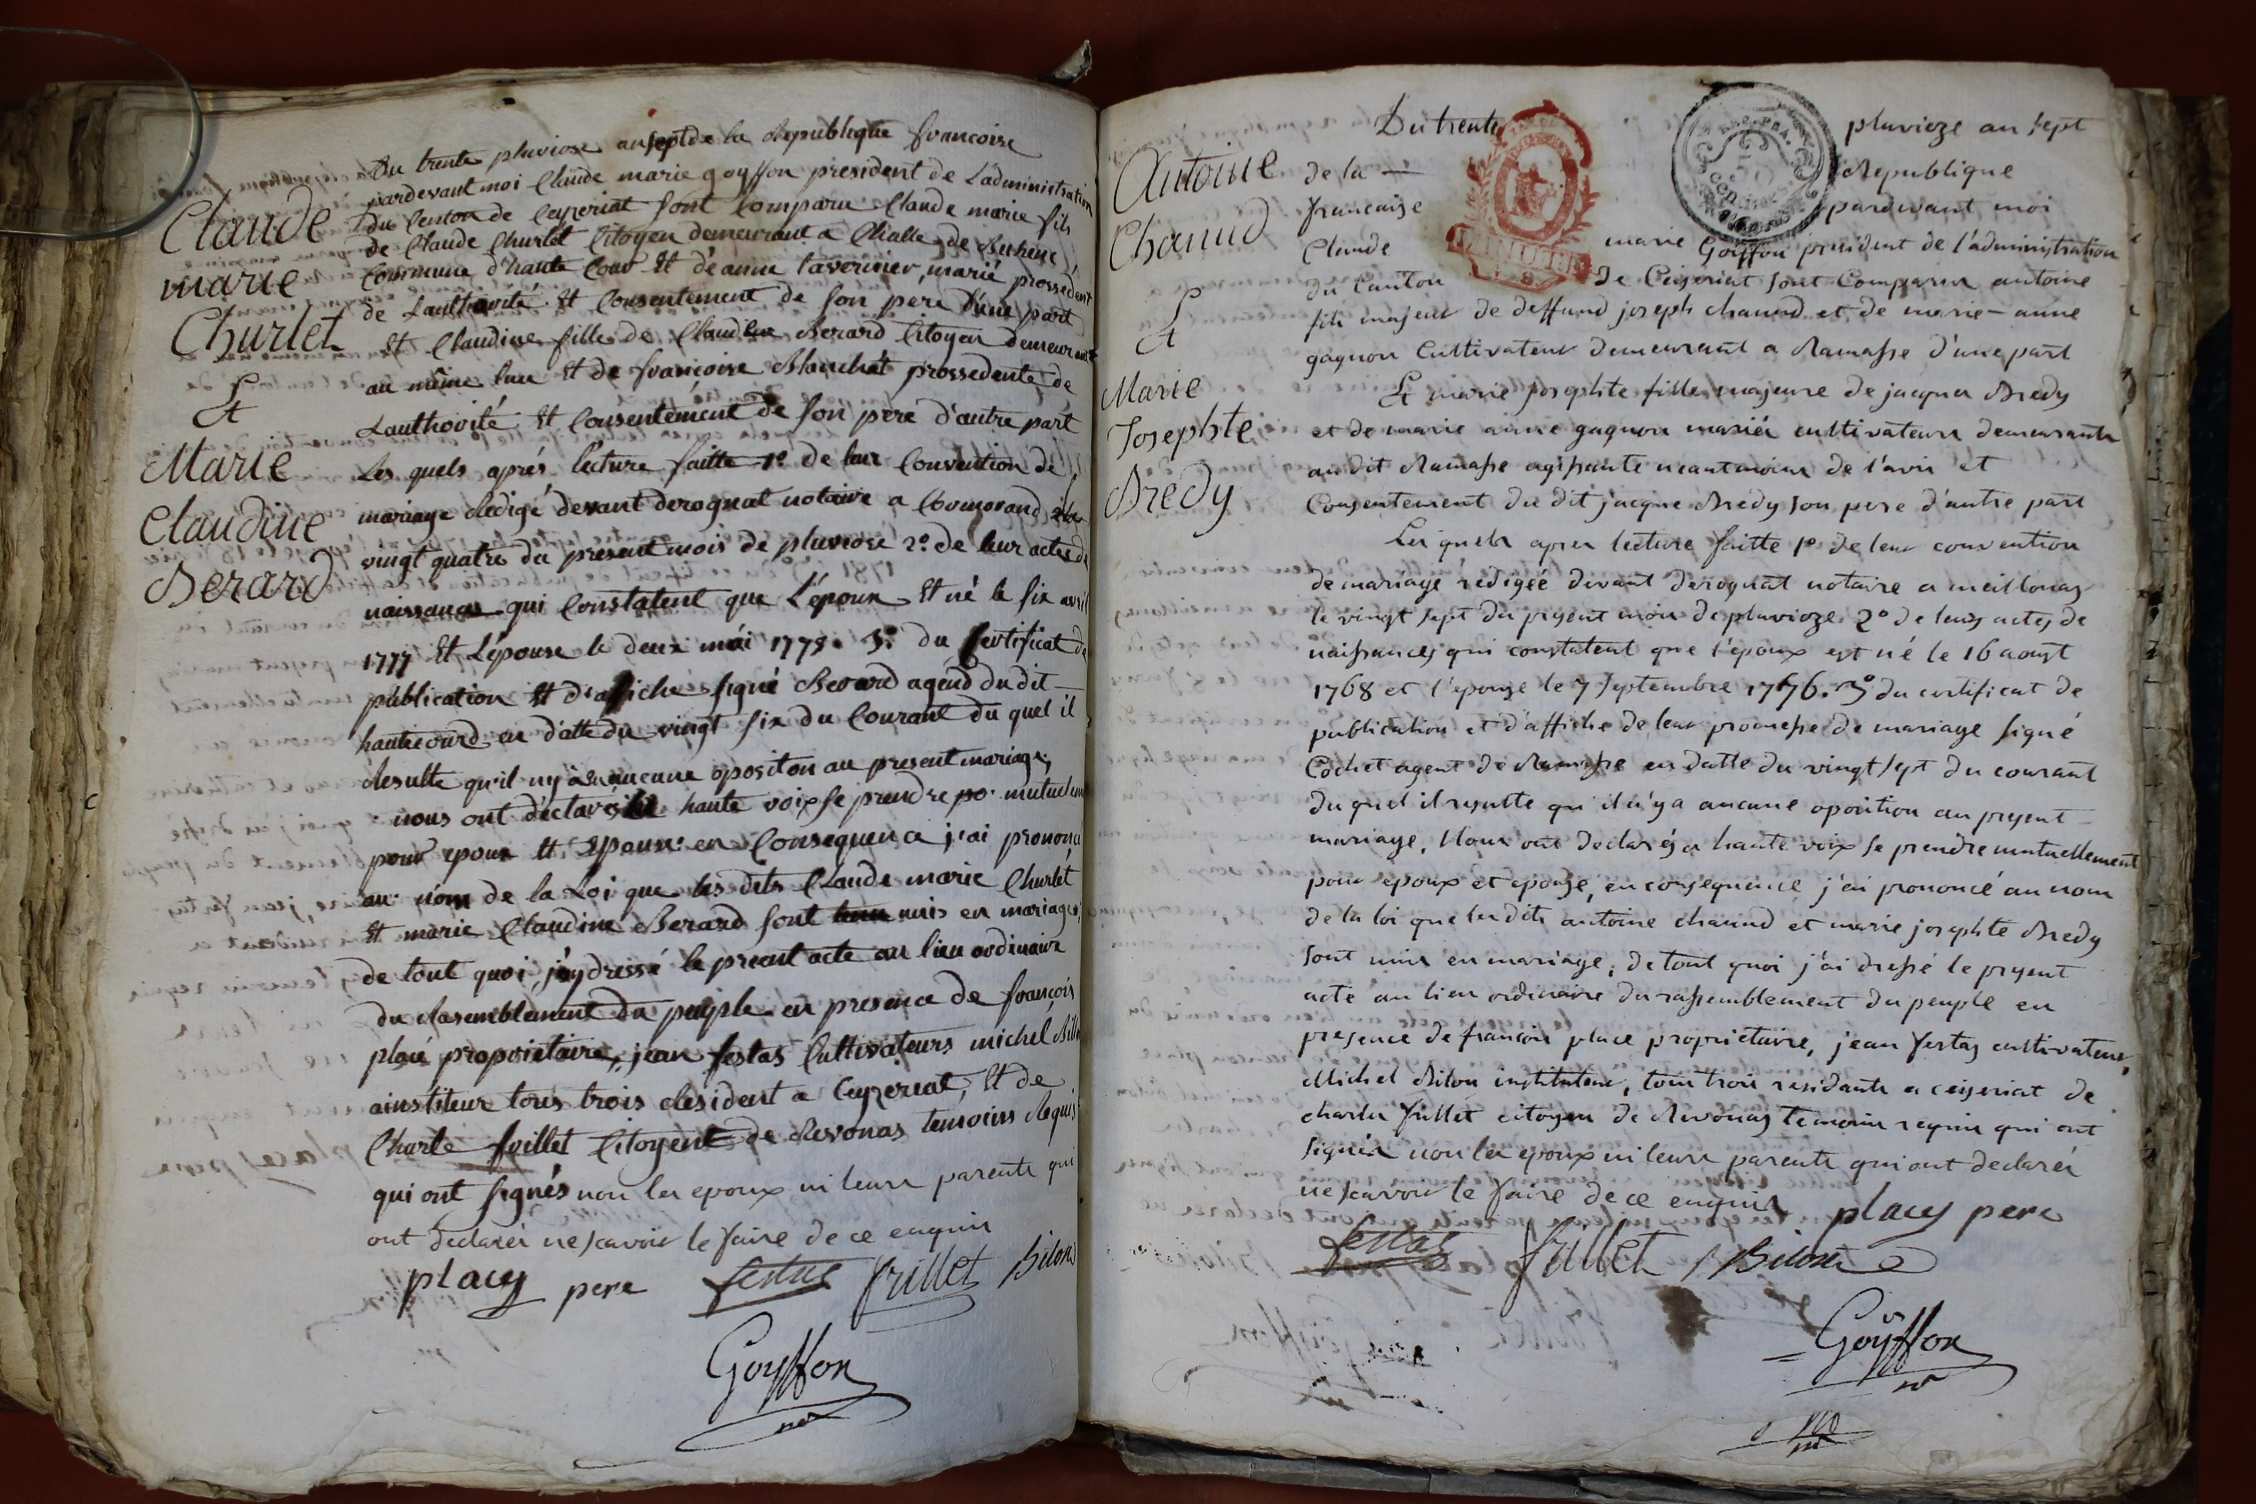 Claude
marie
Churlet
Et
Marie
Claudine
Berard
Du trente pluviose an sept de la Republique francoise
pardevant moi Claude marie goyffon president de L'administration
Du Centon de Ceyzeriat sont Comparu Claude marie fils
de Claude Churlet Citoyen demeurant a Challe de
Commune d'haute Cour Et d'anne tavernier, marié prossedent
de Lauthorité Et Consentement de son pere D'une part
Et Claudine fille de Claudine Berard Citoyen demeurant
au même lieu Et de francoise Blanchet prossedente de
Lauthorité Et Consentement de son pere d'autre part
Les quels aprés lecture faitte 1º de leur Convention de
mariage Redigé devant derognat notaire a le
vingt quatre du present mois de pluviose 2º de leur actes de
naissances qui Constatent que L'époux Et né le six avril
1777 Et L'épouse le deux mai 1775. 3º du Certificat de
publication Et d'affiche signé Berard agend du dit
hautecourd en datte du vingt six du Courant du quel il
Resulte qu'il ny a aucune opositon au present mariage,
nous ont déclarés a haute voix se prendre po mutuellement
pour epoux Et Epouse en Consequence j'ai prononcé
au nom de la Loi que les dits Claude marie Churlet
Et marie Claudine Berard sont unis en mariage,
de tout quoi j'ay dressé le present acte au lieu ordinaire
du Rasemblement du peuple en presence de françois
placé propoietaire, jean festas Cultivateurs michel Bilon
ainstiteur tous trois Resident a Ceyzeriat, Et de
Charle fillet Citoyent de Revonas temoins Requis
qui ont signés non les epoux ni leurs parents qui
ont declarés ne scavoir le faire de ce enquis
placy pere festas frillet Bilon
Goyffon
Antoine
Chanud
Et
Marie
Josephte
Bredy
Du trente pluvioze an sept
de la Republique
francaise pardevant moi
Claude marie Goiffon president de l'administration
du Canton de Ceizeriat sont Comparus antoine
fils majeur de deffund joseph chanud et de marie-anne
gagnon Cultivateur demeurant a Ramasse d'une part
Et marie josephte fille majeure de jacques Bredy
et de marie anne gagnon mariés cultivateurs demeurants
audit Ramasse agissante neantmoins de l'avis et
Consentement du dit jacque Bredy son pere d'autre part
Les quels apres lecture faitte 1º de leur convention
de mariage redigée devant derognat notaire a meillonas
le vingt sept du present mois de pluvioze 2º de leurs actes de
naissances qui constatent que l'époux est né le 16 aoust
1768 et l'epouze le 7 septembre 1776. 3º du certificat de
publication et d'affiche de leur promesse de mariage signé
Cochet agent de Ramasse en datte du vingt sept du courant
du quel il resulte qu'il n'y a aucune oposition au present
mariage, Nous ont declarés a haute voix se prendre mutuellement
pour epoux et epouze, en consequence j'ai prononcé au nom
de la loi que les dits antoine chanud et marie josephte Bredy
sont unis en mariage, de tout quoi j'ai dressé le present
acte au lieu ordinaire du rassemblement du peuple en
presence de francois place proprietaire, jean festas cultivateur,
Michel Bilon instituteur, tous trois residants a ceizeriat de
charles fillet citoyen de Revonas temoins requis qui ont
signés non les epoux ni leurs parents qui ont declarés
ne scavoir le faire de ce enquis placy pere
festas frillet Bilon
Goÿffon